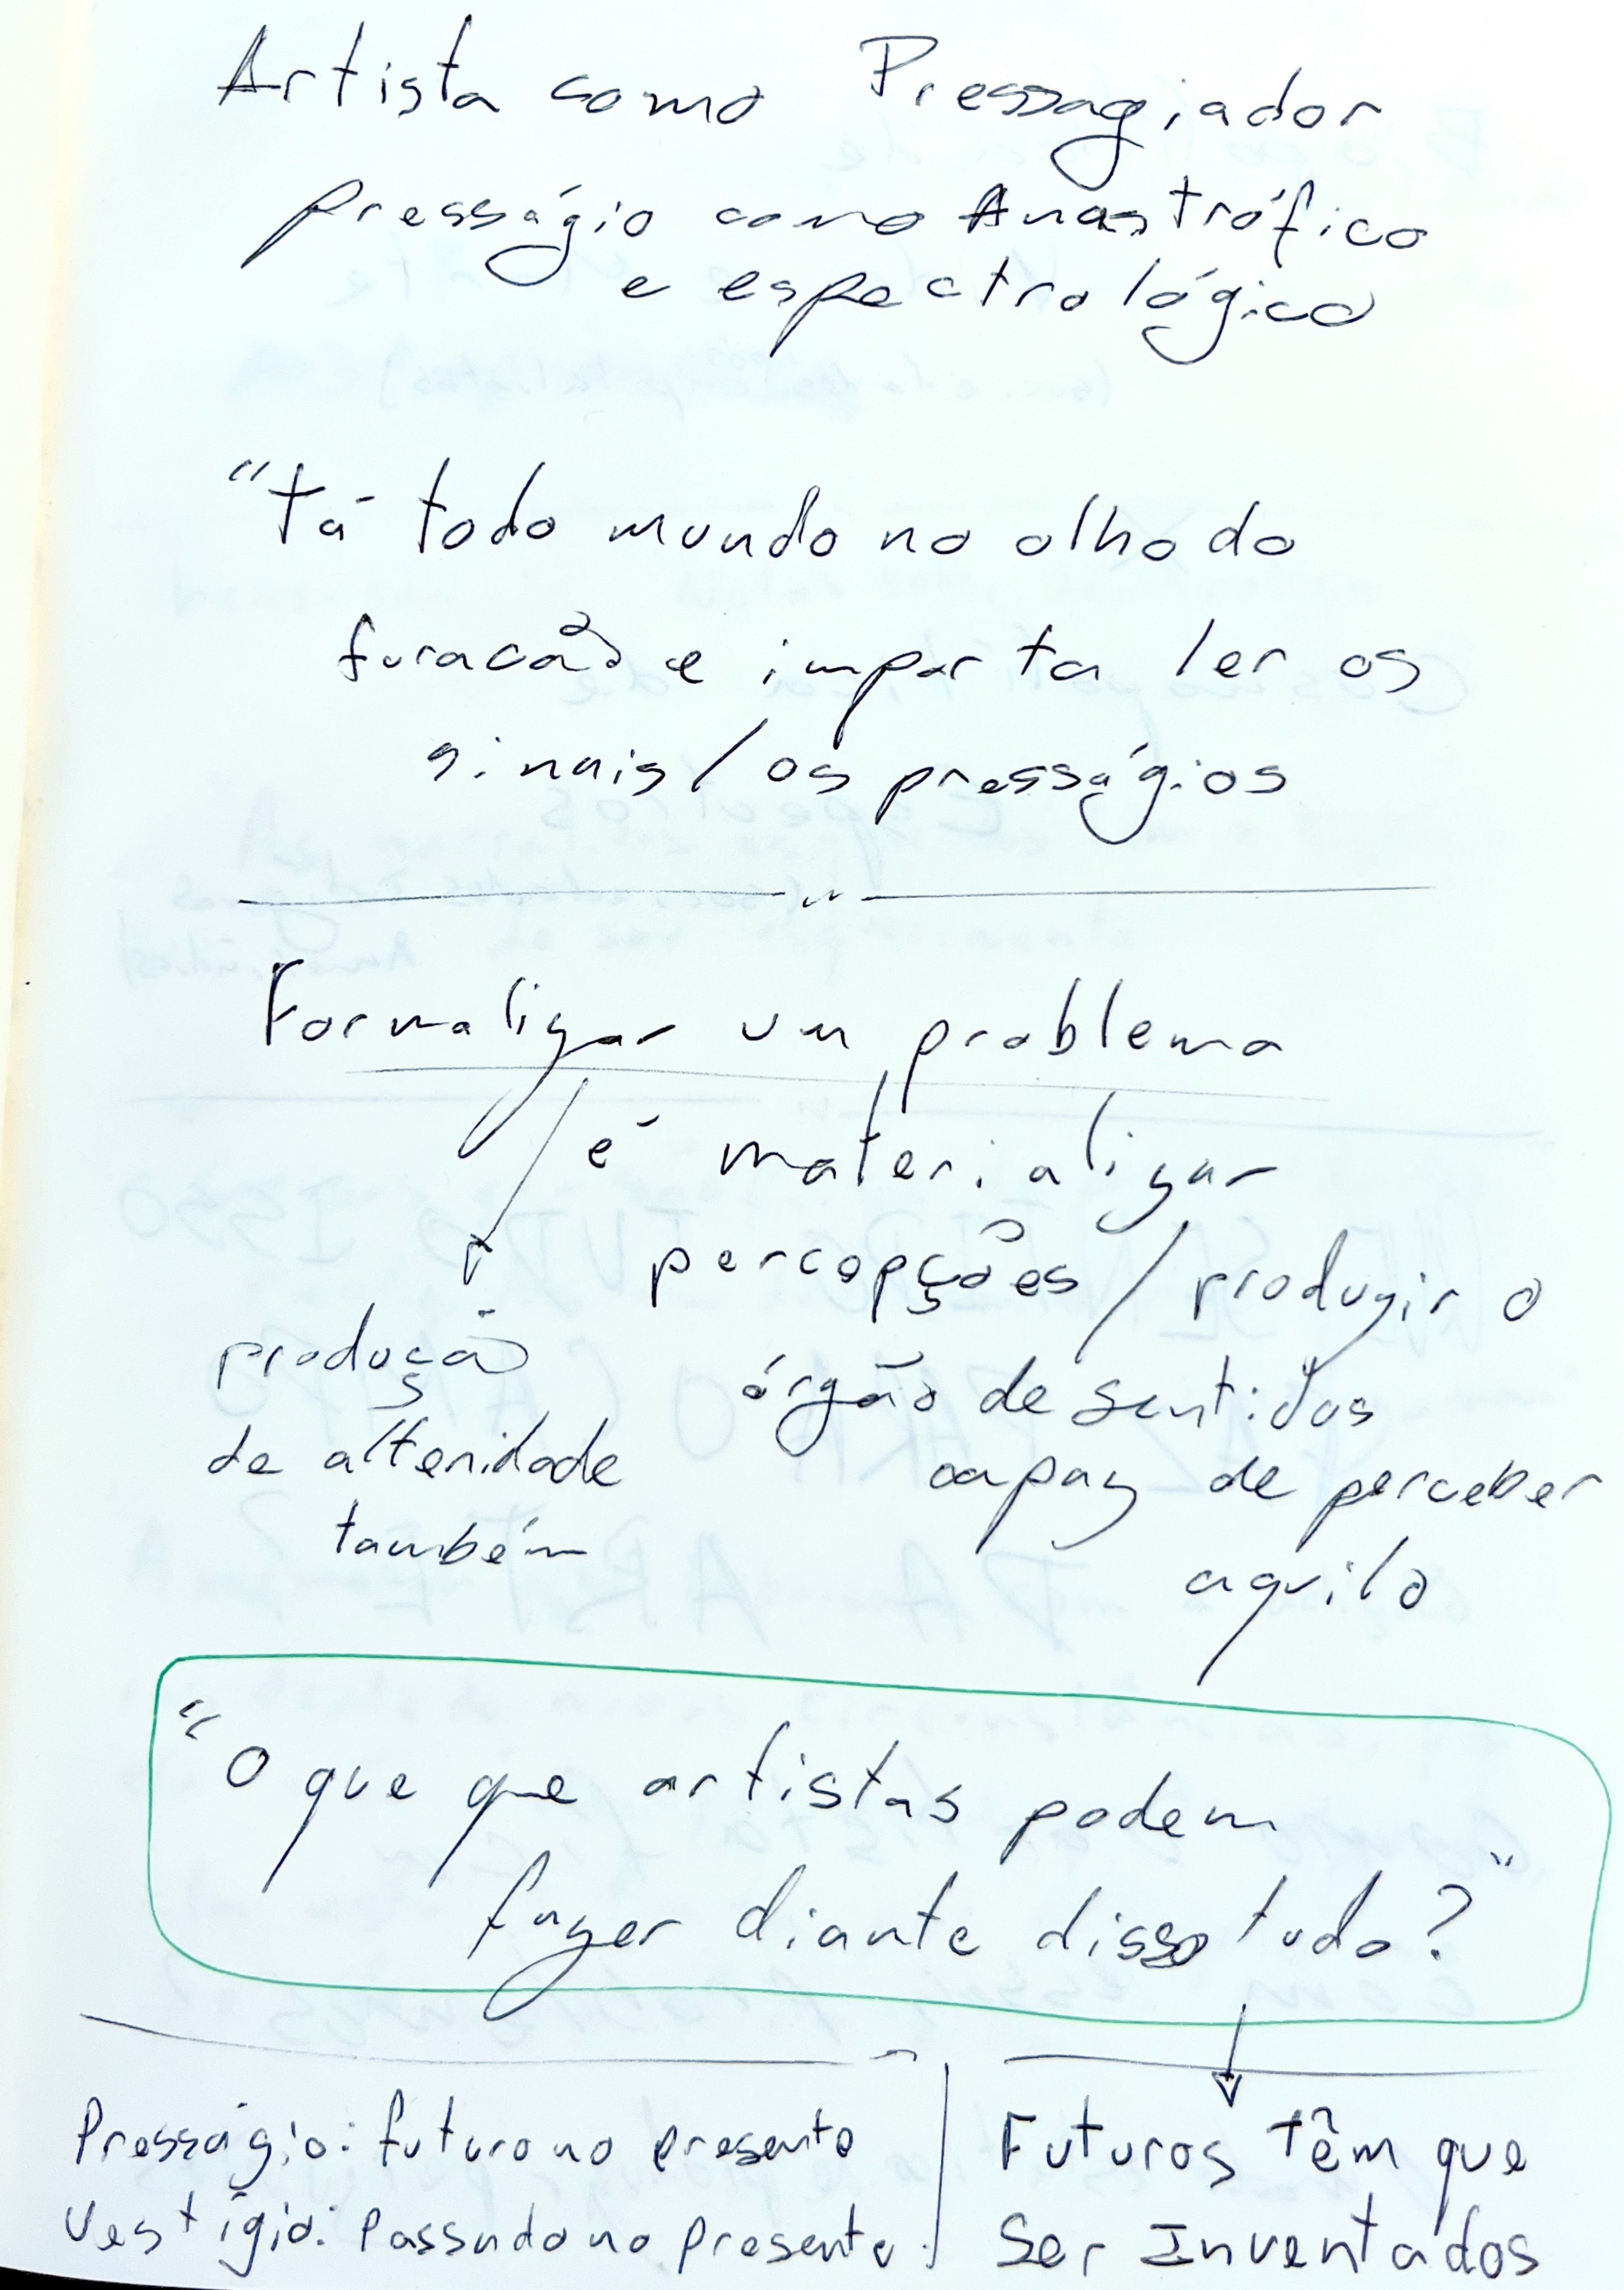 Artista como Pressagiador
presságio como Anastrófico
e espectrológico
"Tá todo mundo no olho do
furacão e importa ler os
sinais / os presságios
Formalizar um problema
é materializar
percepções / produzir o
órgão de sentidos
capaz de perceber
aquilo
produção
de alteridade
também
"O que que artistas podem
fazer diante disso tudo?"
Presságio: futuro no presente
Vestígio: Passado no presente.
Futuros Têm que
Ser Inventados